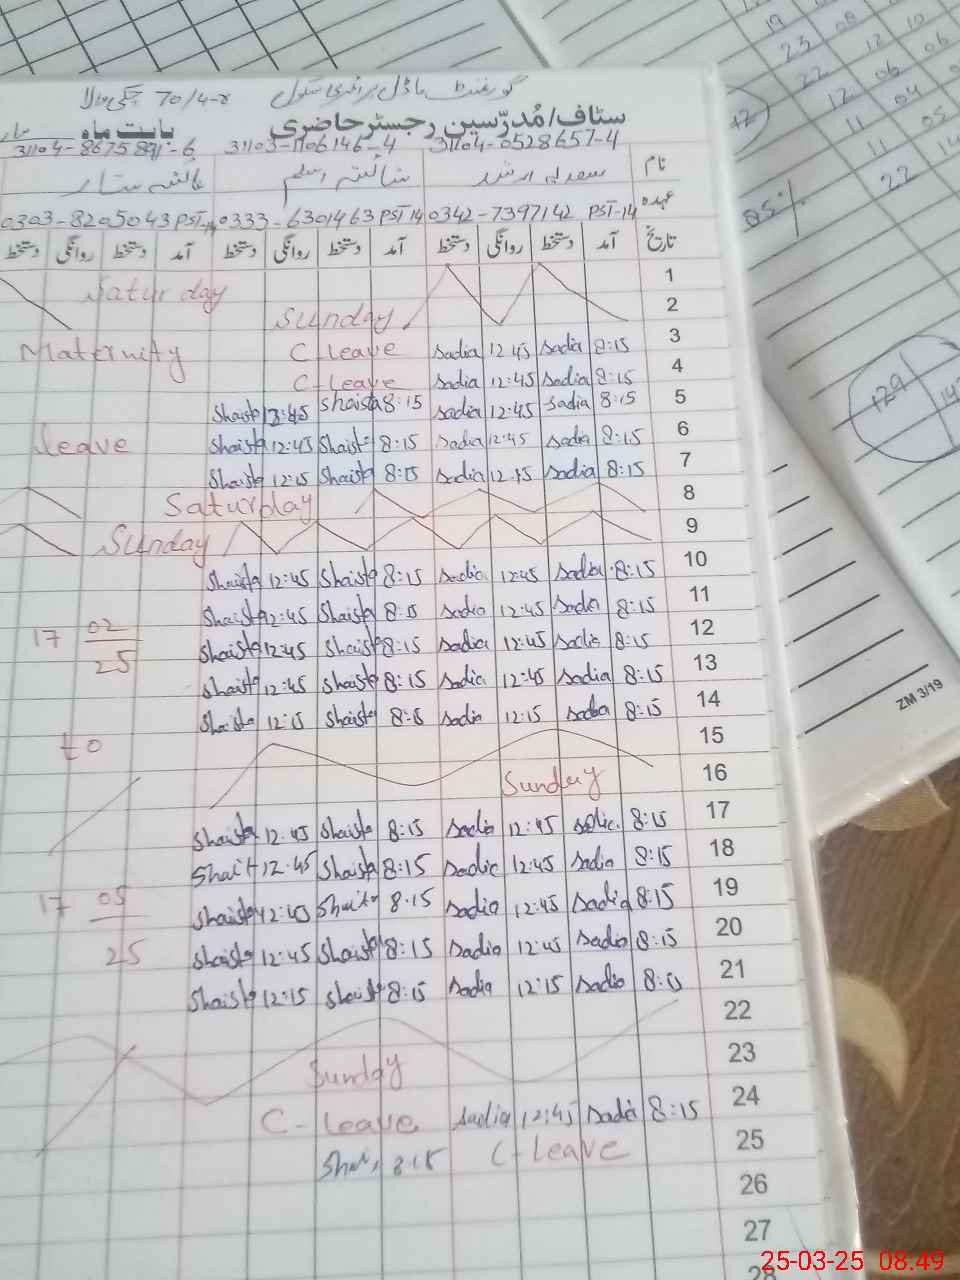 گورنمنٹ ماڈل پرائمری سکول 70/4-R
سٹاف/مُدرّسین رجسٹر حاضری بابت ماہ
31104-0528657-4 31103-1106146-4 31104-8675891-6
نام سعدیہ ارشد شائستہ اسلم عائشہ ستار
عہدہ PST-14 0342-7397142 PST 14 0333-6301463 PST-14 0303-8205043
تاریخ آمد دستخط روانگی دستخط آمد دستخط روانگی دستخط آمد دستخط روانگی دستخط
Saturday 1
Sunday 2
Maternity C-leave Sadia 12:45 Sadia 8:15 3
C-leave Sadia 12:45 Sadia 8:15 4
Shaista 12:45 Shaista 8:15 Sadia 12:45 Sadia 8:15 5
leave Shaista 12:45 Shaista 8:15 Sadia 12:45 Sadia 8:15 6
Shaista 12:15 Shaista 8:15 Sadia 12:15 Sadia 8:15 7
Saturday 8
Sunday 9
Shaista 12:45 Shaista 8:15 Sadia 12:45 Sadia 8:15 10
Shaista 12:45 Shaista 8:15 Sadia 12:45 Sadia 8:15 11
17 02 Shaista 12:45 Shaista 8:15 Sadia 12:45 Sadia 8:15 12
25 Shaista 12:45 Shaista 8:15 Sadia 12:45 Sadia 8:15 13
Shaista 12:15 Shaista 8:15 Sadia 12:15 Sadia 8:15 14
to 15
Sunday 16
Shaista 12:45 Shaista 8:15 Sadia 12:45 Sadia 8:15 17
Shaist 12:45 Shaista 8:15 Sadia 12:45 Sadia 8:15 18
17 05 Shaista 12:45 Shaista 8:15 Sadia 12:45 Sadia 8:15 19
25 Shaista 12:45 Shaista 8:15 Sadia 12:45 Sadia 8:15 20
Shaista 12:15 Shaista 8:15 Sadia 12:15 Sadia 8:15 21
22
Sunday 23
C-leave Sadia 12:45 Sadia 8:15 24
8:15 C-leave 25
26
27
28
85%
ZM 3/19
25-03-25 08:49